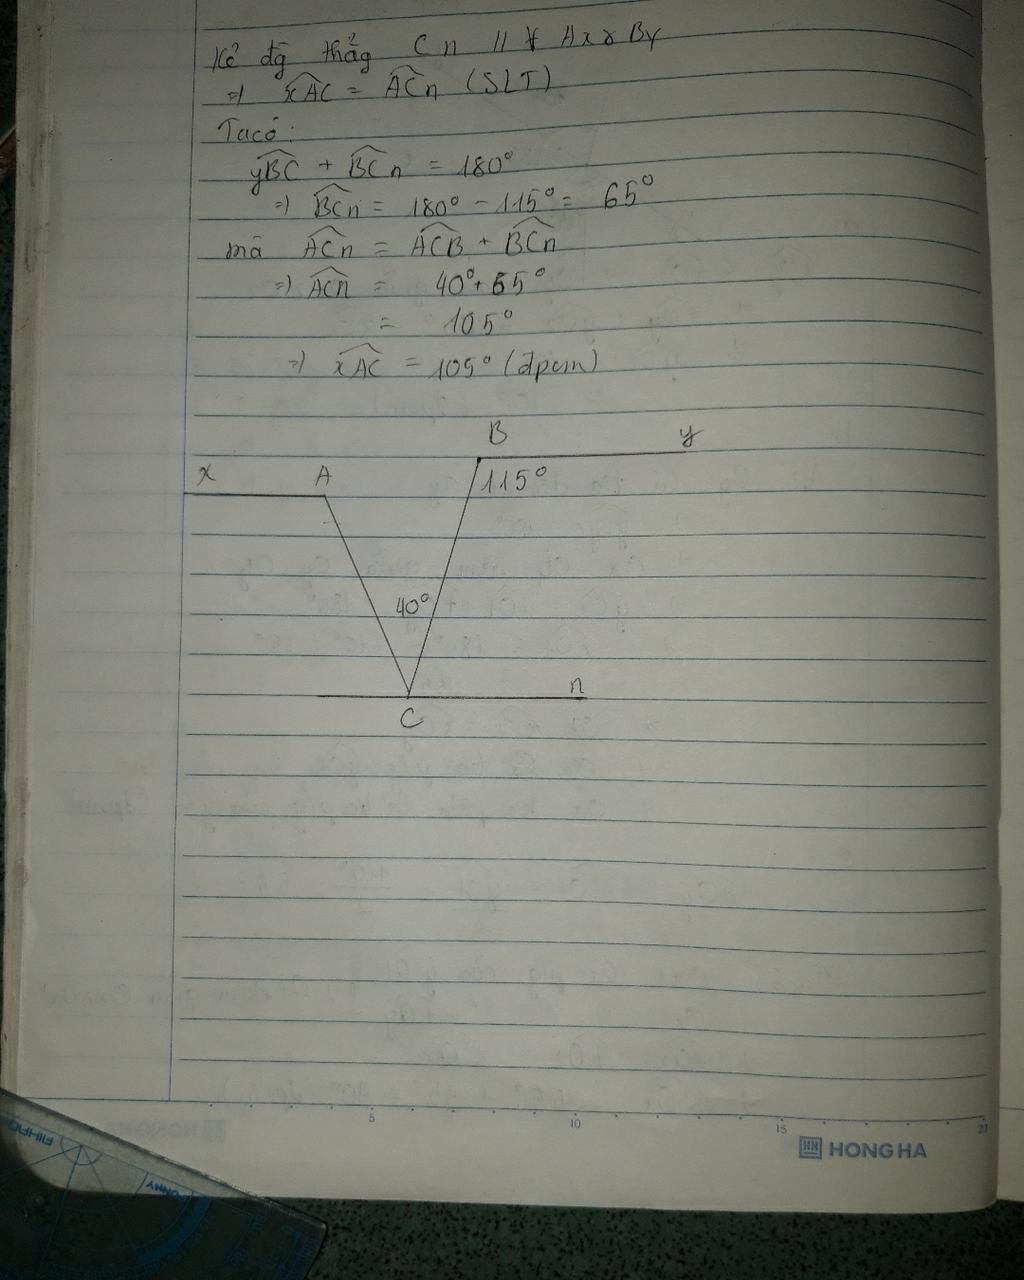 Kẻ đg thẳng Cn // Ax & By
=> xAC = ACn (SLT)
Ta có:
yBC + BCn = 180°
=> BCn = 180° - 115° = 65°
mà ACn = ACB + BCn
=> ACn = 40° + 65°
= 105°
=> xAC = 105° (đpcm)
B y
x A 115°
40°
n
C
5 10 15 20
HONG HA